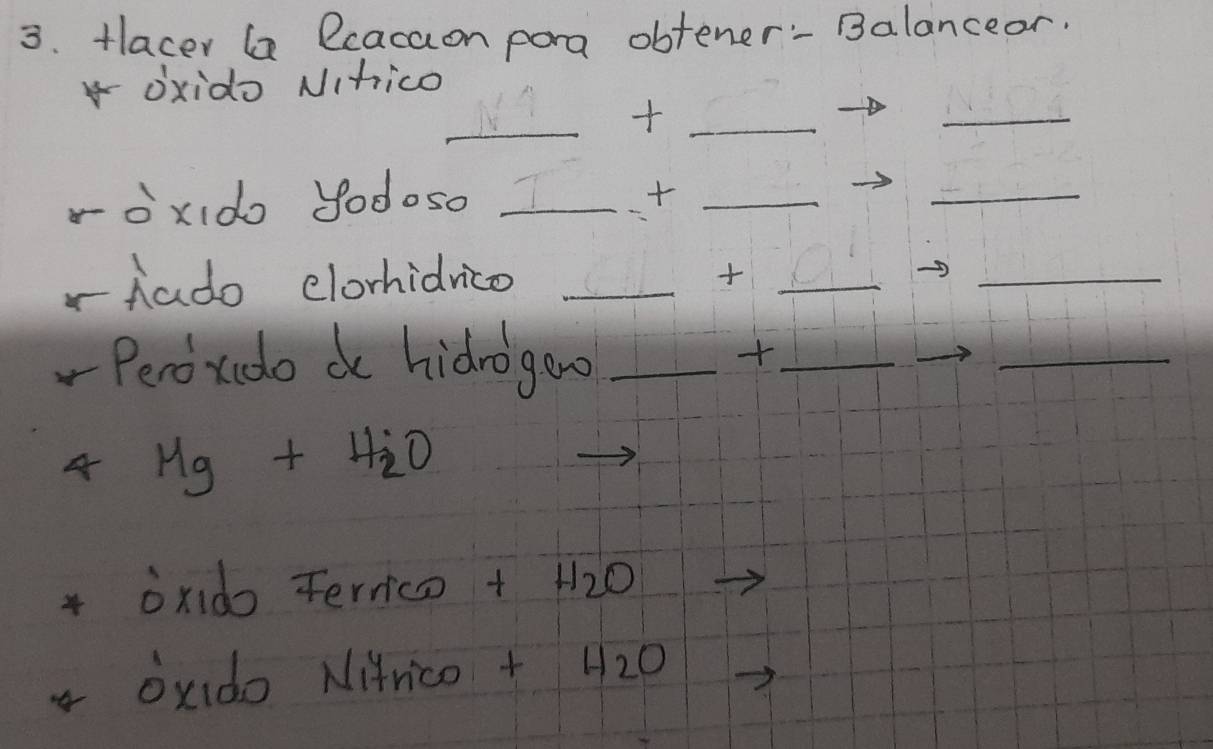 3. Hacer la Reaccion para obtener:- Balancear.
* óxido Nitrico
___ + ___ → ___
* òxido Yodoso I + ___ → ___
* Àcido clorhidrico ___ + ___ → ___
* Peróxido de hidrógeno ___ + ___ → ___
* Mg + H2O →
* òxido Ferrico + H2O →
* òxido Nitrico + H2O →